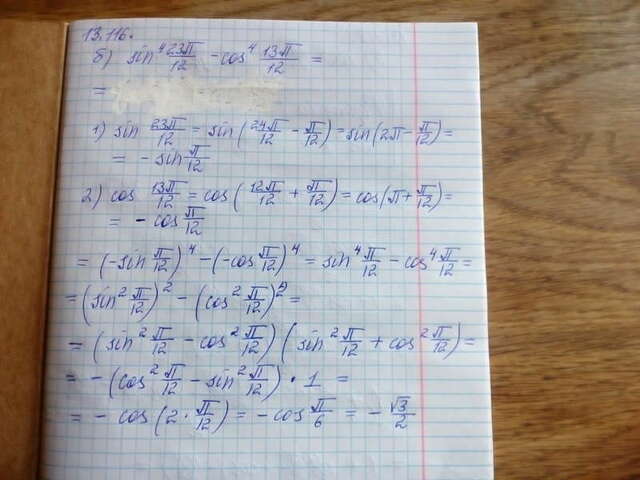 13.116.
б) sin⁴ 23π/12 - cos⁴ 13π/12 =
=
1) sin 23π/12 = sin(24π/12 - π/12) = sin(2π - π/12) =
= - sin π/12
2) cos 13π/12 = cos(12π/12 + π/12) = cos(π + π/12) =
= - cos π/12
= (-sin π/12)⁴ - (-cos π/12)⁴ = sin⁴ π/12 - cos⁴ π/12 =
= (sin² π/12)² - (cos² π/12)² =
= (sin² π/12 - cos² π/12)(sin² π/12 + cos² π/12) =
= -(cos² π/12 - sin² π/12) · 1 =
= - cos(2 · π/12) = - cos π/6 = - √3/2